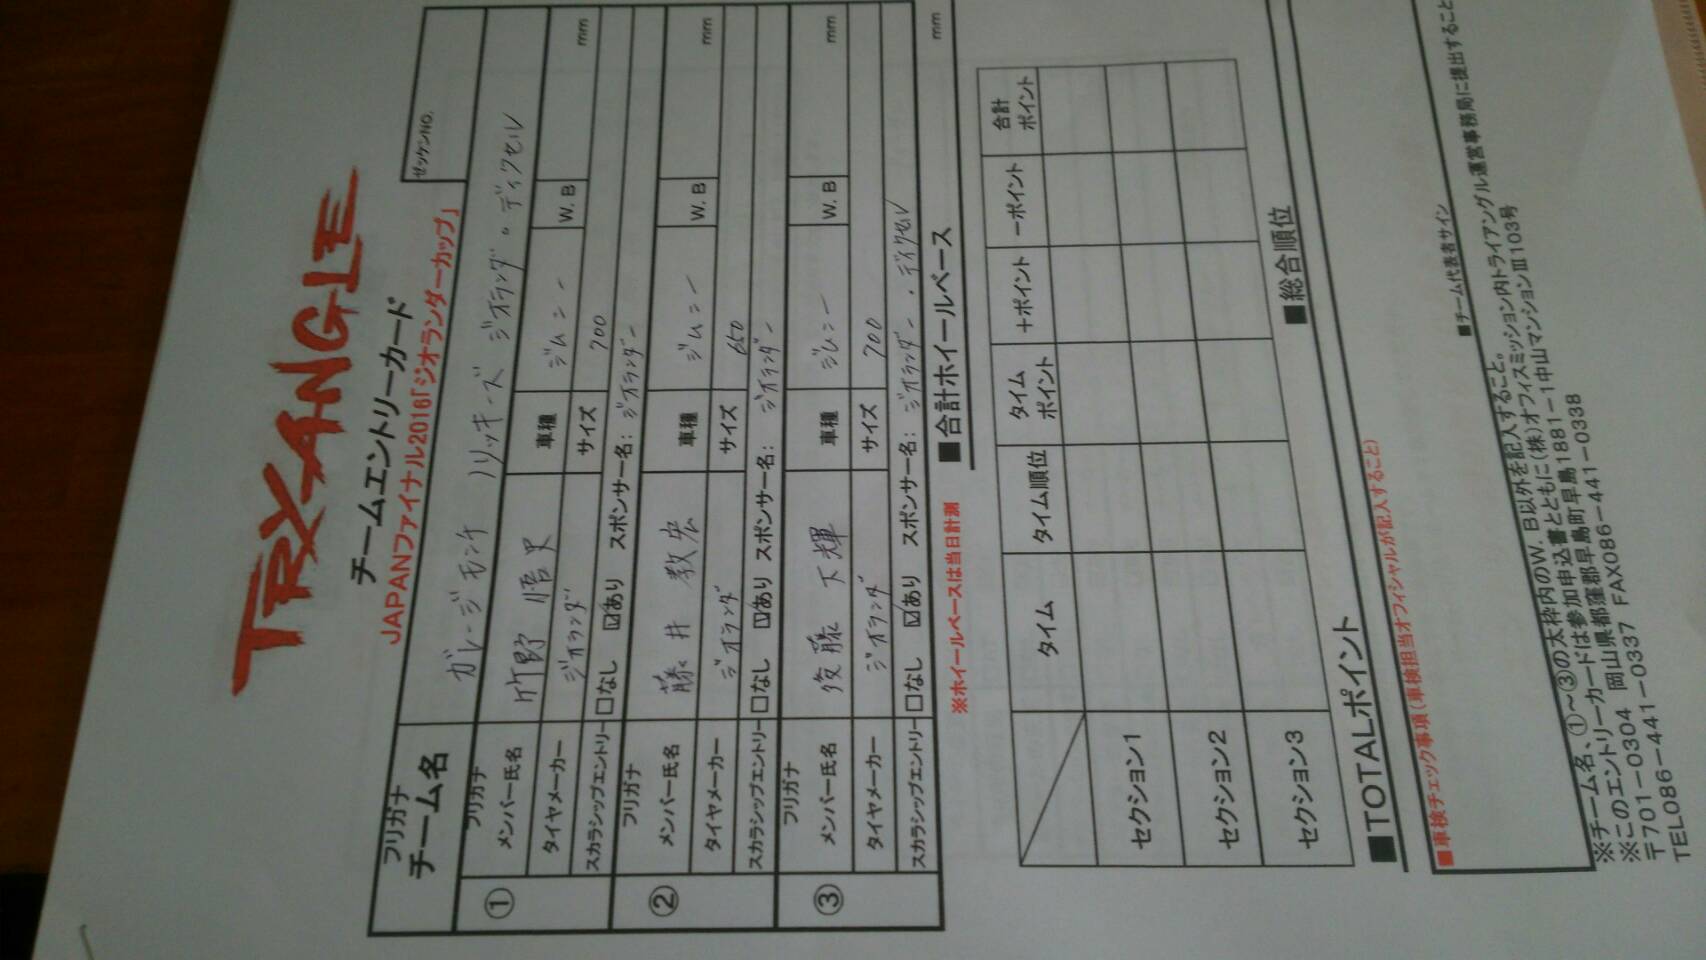 TRYANGLE
チームエントリーカード
JAPANファイナル2016「ジオランダーカップ」
ゼッケンNO.
フリガナ
チーム名 ガレージモンキ リッキーズ ジオランダー・ディクセル
①
フリガナ
メンバー氏名 竹野 悟史 車種 ジムニー W. B mm
タイヤメーカー ジオランダ サイズ 700
スカラシップエントリー □なし ☑あり スポンサー名: ジオランダー
②
フリガナ
メンバー氏名 藤井 教宏 車種 ジムニー W. B mm
タイヤメーカー ジオランダ サイズ 650
スカラシップエントリー □なし ☑あり スポンサー名: ジオランダー
③
フリガナ
メンバー氏名 後藤 輝 車種 ジムニー W. B mm
タイヤメーカー ジオランダ サイズ 700
スカラシップエントリー □なし ☑あり スポンサー名: ジオランダー・ディクセル
※ホイールベースは当日計測
■合計ホイールベース mm
タイム タイム順位 タイムポイント +ポイント −ポイント 合計ポイント
セクション1
セクション2
セクション3
■TOTALポイント
■総合順位
■車検チェック事項(車検担当オフィシャルが記入すること)
■チーム代表者サイン
※チーム名、①~③の太枠内のW. B以外を記入すること。
※このエントリーカードは参加申込書とともに(株)オフィスミッション内トライアングル運営事務局に提出すること
〒701-0304 岡山県都窪郡早島町早島1881-1中山マンションⅢ103号
TEL086-441-0337 FAX086-441-0338